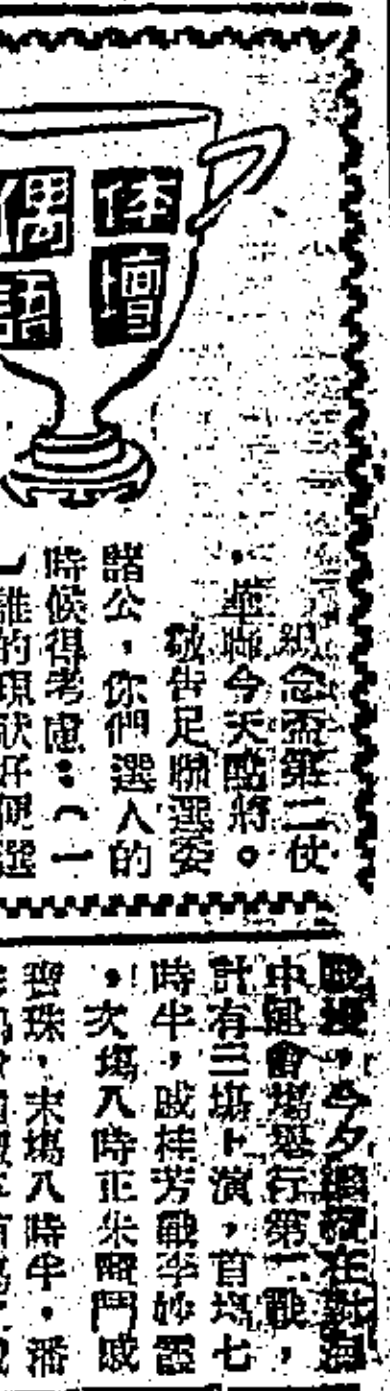 体壇
偶語
紀念盃第二仗
，華聯今天點將。
敬告足聯選委
諸公，你們選人的
時候得考慮：（一
）誰的現狀好便選
今夕繼續在對海
中運會場舉行第二戰，
計有三場上演，首場七
時半，戚桂芳戰李妙霞
，次場八時正朱寶鬥戚
寶珠，末場八時半，潘